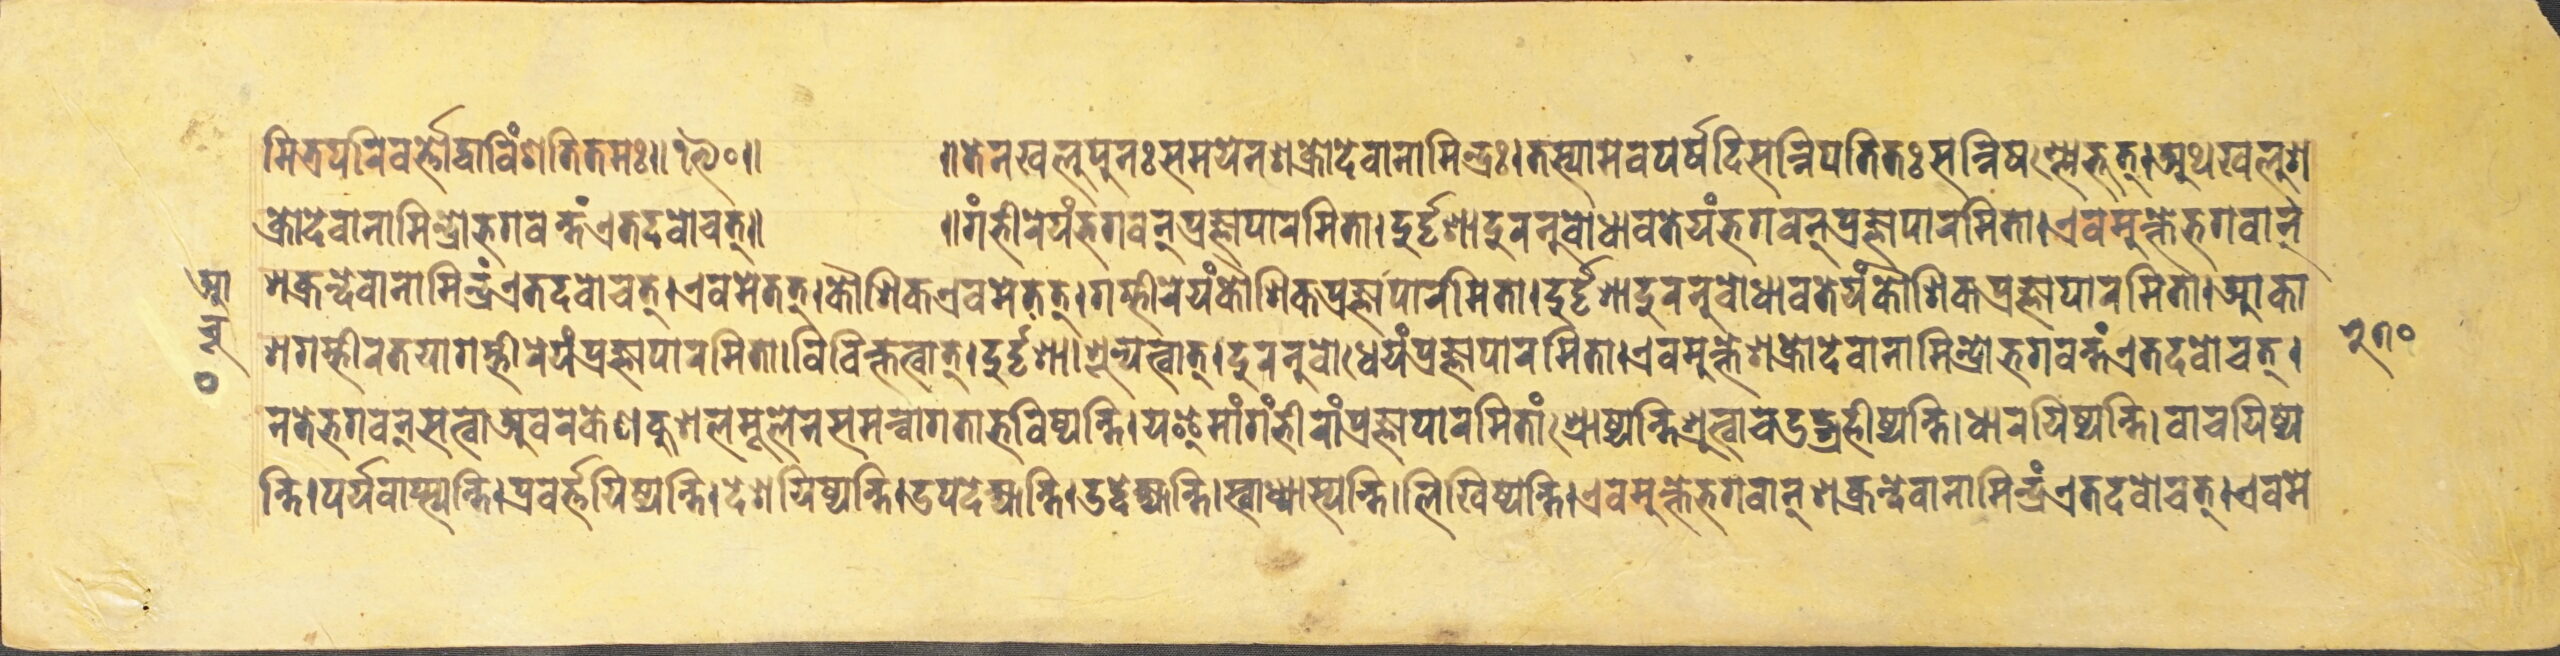 मित्रपरिवर्त्तो द्वाविंशतितमः॥ १९०॥ ॥तेनखलुपुनःसमयेनशक्रोदेवानामिन्द्रः।तस्यामेवपर्षदिसन्निपतितःसन्निषण्णोभूत्।अथखलुश
क्रोदेवानामिन्द्रोभगवन्तंएतदवोचत्॥ ॥गंभीरेयंभगवन्प्रज्ञापारमिता।दुर्दृशादुरनुबोधावतेयंभगवन्प्रज्ञापारमिता।एवमुक्तेभगवान्
शक्रन्देवानामिन्द्रंएतदवोचत्।एवमेतत्।कौशिकएवमेतत्।गम्भीरेयंकौशिकप्रज्ञापारमिता।दुर्दृशादुरनुबोधावतेयंकौशिकप्रज्ञापारमिता।आका
शगम्भीरतयागम्भीरेयंप्रज्ञापारमिता।विविक्तत्वात्।दुर्दृशा।शून्यत्वात्।दुरनुबोधेयंप्रज्ञापारमिता।एवमुक्तेशक्रोदेवानामिन्द्रोभगवन्तंएतदवोचत्।
नतेभगवन्सत्वाअवरकेणकुशलमूलेनसमन्वागताभविष्यन्ति।यइमांगंभीरांप्रज्ञापारमितांश्रोष्यन्तिश्रुत्वाचउद्ग्रहीष्यन्ति।धारयिष्यन्ति।वाचयिष्य
न्ति।पर्यवाप्स्यन्ति।प्रवर्त्तयिष्यन्ति।देशयिष्यन्ति।उपदेक्ष्यन्ति।उद्देक्ष्यन्ति।स्वाध्यास्यन्ति।लिखिष्यन्ति।एवमुक्तेभगवान्शक्रन्देवानामिन्द्रंएतदवोचत्।एवमे